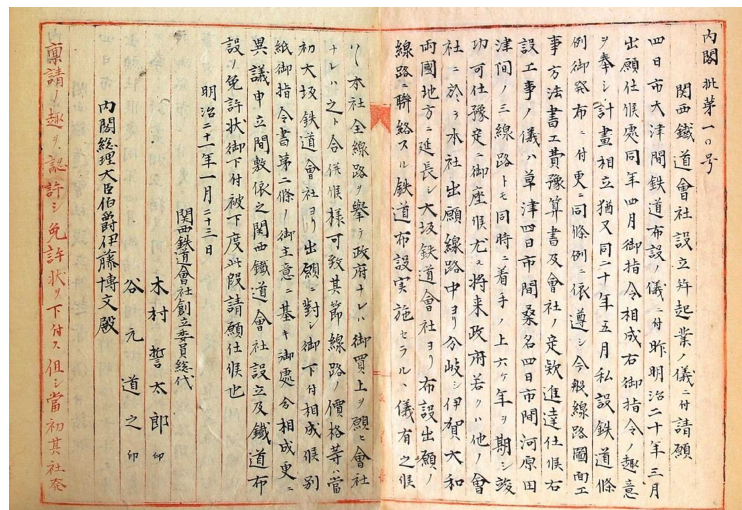 内閣批第一〇号
関西鐵道會社設立幷起業ノ儀ニ付請願
四日市大津間鉄道布設ノ儀ニ付昨明治二十年三月
出願仕候處同年四月御指令相成右御指令ノ趣意
ヲ奉シ計畫相立猶又同二十年五月私設鉄道條
例御發布ニ付更ニ同條例ニ依遵シ今般線路圖面工
事方法書工費豫算書及會社ノ定欵進達仕候右
設工事ノ儀ハ草津四日市間桑名四日市間河原田
津間ノ三線路トモ同時ニ着手ノ上六ケ年ヲ期シ竣
功可仕豫定ニ御座候尤モ将来政府若クハ他ノ會
社ニ於テ本社出願線路中ヨリ分岐シ伊賀大和
両國地方ニ延長シ大坂鉄道會社ヨリ布設出願ノ
線路ニ聯絡スル鉄道布設実施セラルヽ儀有之候
ハヽ本社全線路ヲ擧テ政府ナレハ御買上ヲ願ヒ會社
ナレハ之ト合併候様可致其節線路ノ價格等ハ當
初大坂鉄道會社ヨリ出願ニ對シ御下付相成候別
紙御指令書第二條ノ御主意ニ基キ御處分相成更ニ
異議申立間敷依之関西鐵道會社設立及鐵道布
設ノ免許状御下付被下度此段請願仕候也
明治二十一年一月二十三日
関西鉄道會社創立委員総代
木村誓太郎 印
谷元道之 印
内閣総理大臣伯爵伊藤博文殿
稟請ノ趣ヲ認許シ免許状ヲ下付ス但シ當初其社発